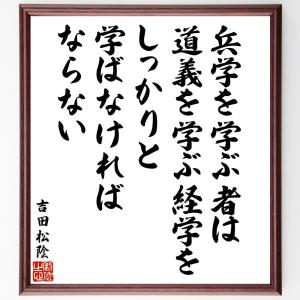 兵学を学ぶ者は
道義を学ぶ経学を
しっかりと
学ばなければ
ならない
吉田松陰